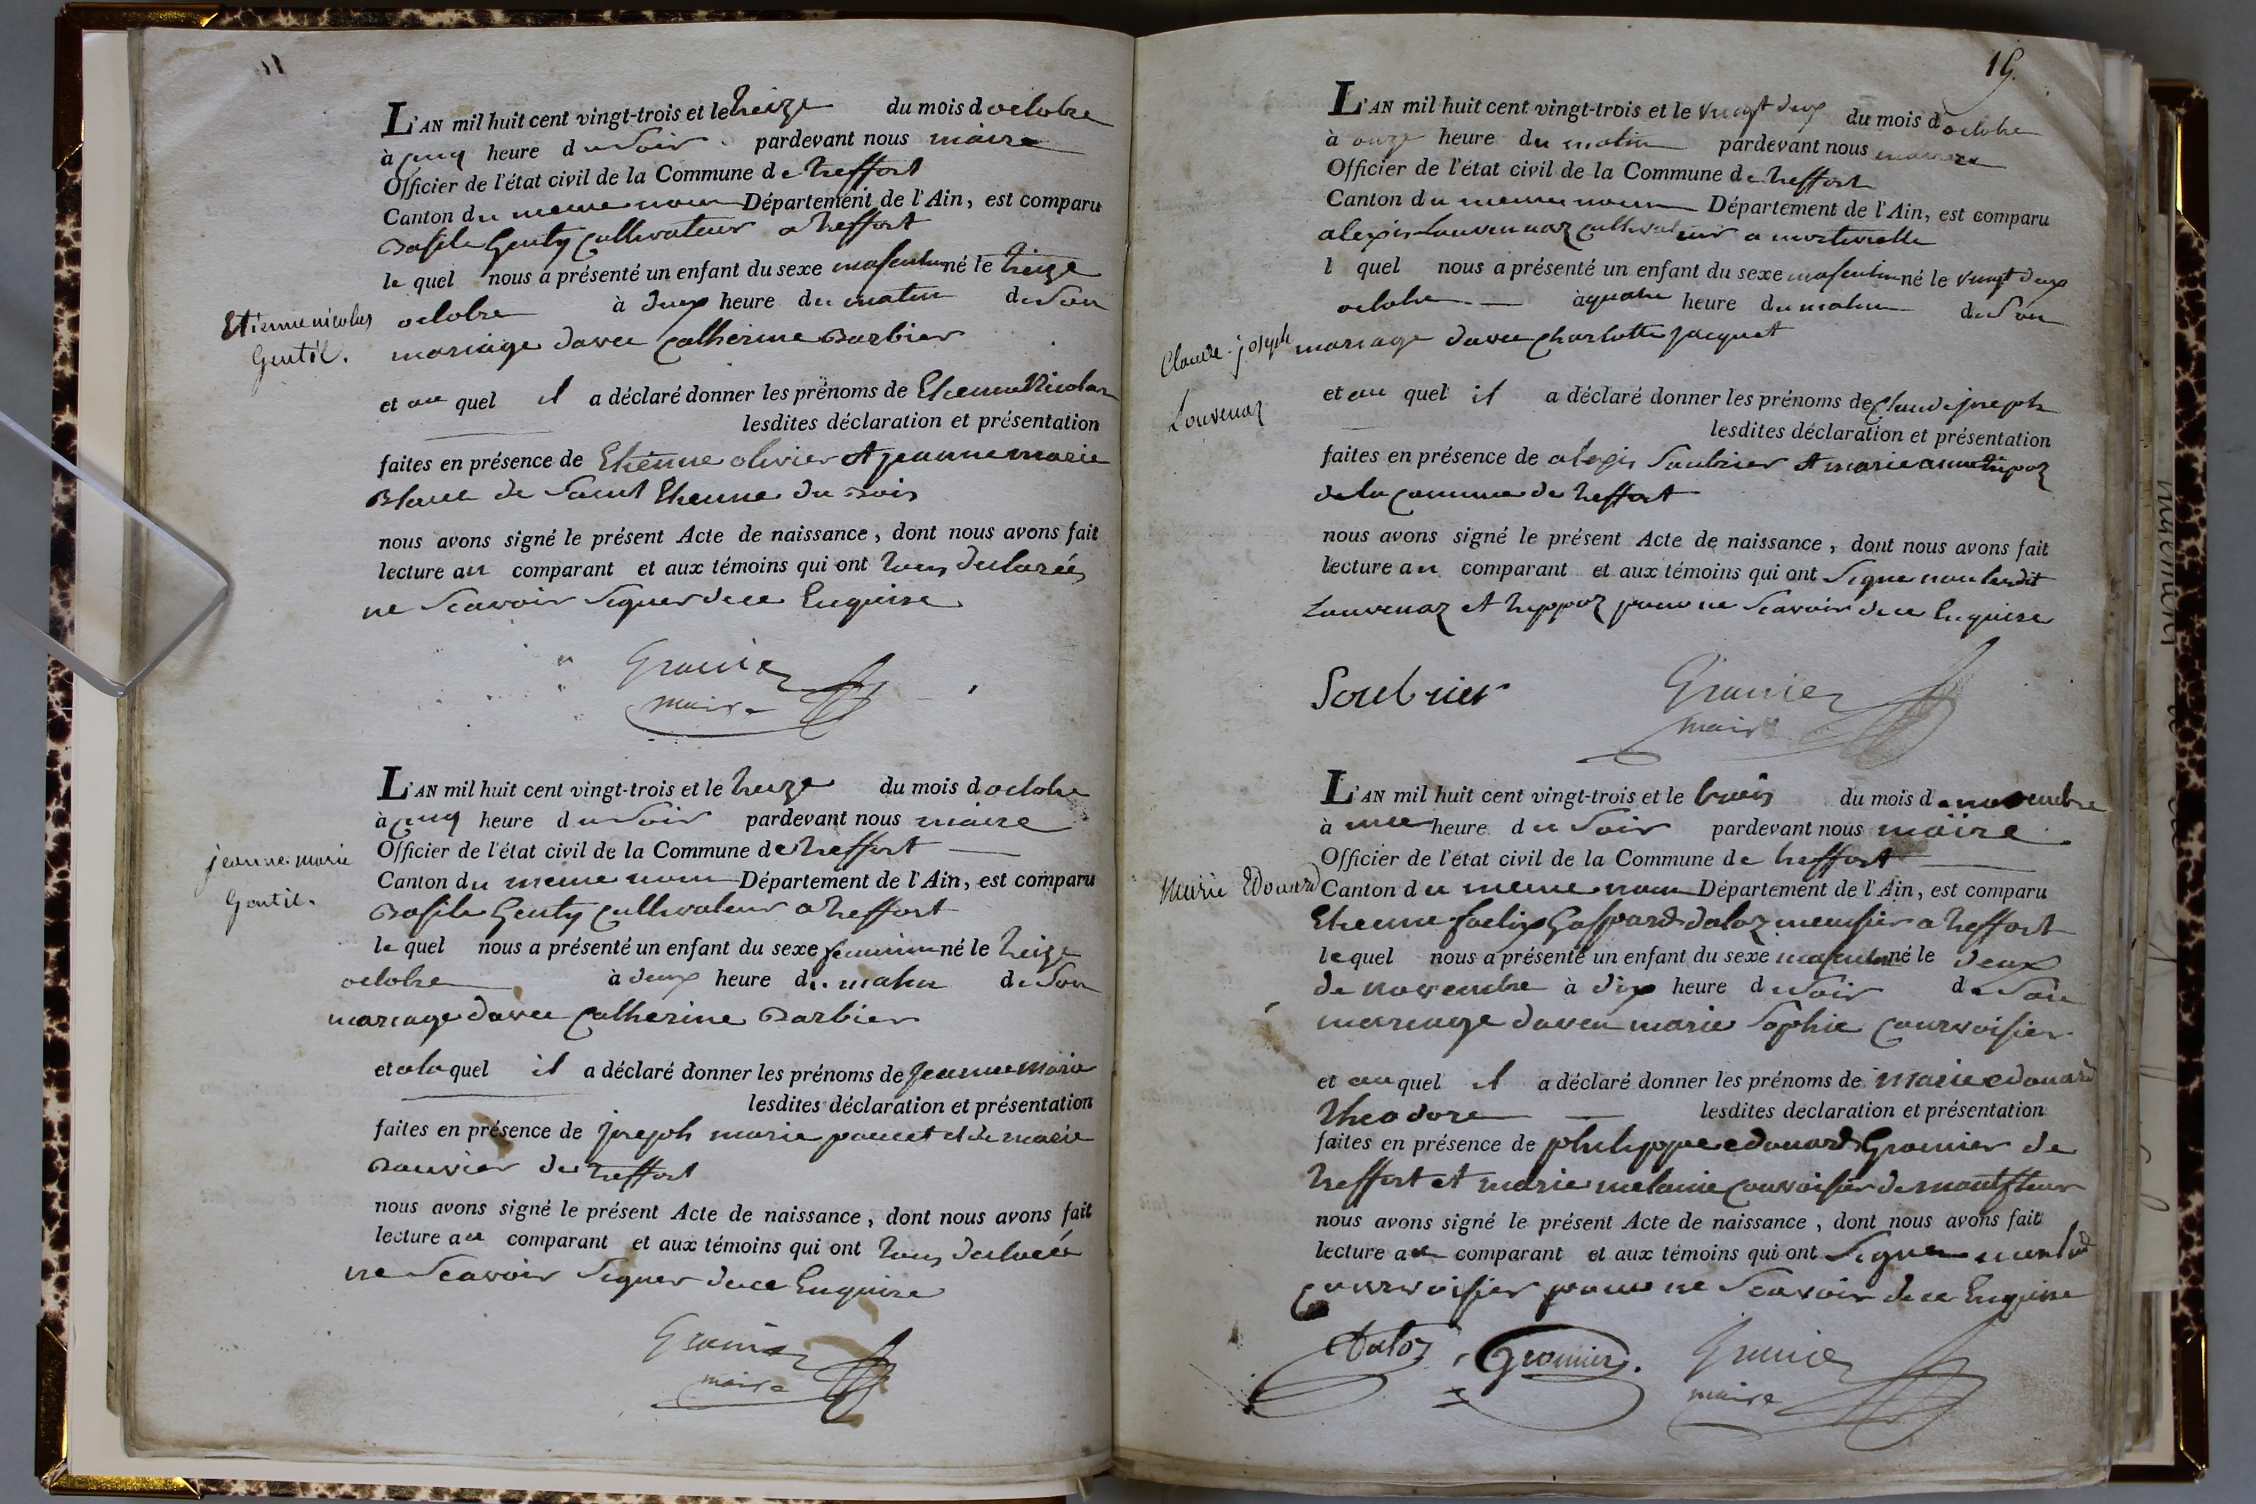 L'AN mil huit cent vingt-trois et le treize du mois d octobre
à cinq heure du soir pardevant nous maire
Officier de l'état civil de la Commune de treffort
Canton du meme nom Département de l'Ain, est comparu
Basile Genty cultivateur a treffort
le quel nous a présenté un enfant du sexe masculin né le treize
octobre à deux heure du matin de Son
mariage davec catherine Barbier
Etienne nicolas
Gentil.
et au quel il a déclaré donner les prénoms de Etienne Nicolas
lesdites déclaration et présentation
faites en présence de Etienne olivier et jeanne marie
Blanc de Saint Etienne du Bois
nous avons signé le présent Acte de naissance, dont nous avons fait
lecture au comparant et aux témoins qui ont tous declarés
ne Scavoir Signer de ce Enquise
maire
L'AN mil huit cent vingt-trois et le treize du mois d octobre
à cinq heure du soir pardevant nous maire
Officier de l'état civil de la Commune de treffort
Canton du meme nom Département de l'Ain, est comparu
Basile Genty cultivateur a treffort
le quel nous a présenté un enfant du sexe feminin né le treize
octobre à deux heure du matin de Son
mariage davec catherine Barbier
jeanne marie
Gentil.
et a la quel il a déclaré donner les prénoms de jeanne marie
lesdites déclaration et présentation
faites en présence de joseph marie poncet et de marie
Bouvier de treffort
nous avons signé le présent Acte de naissance, dont nous avons fait
lecture au comparant et aux témoins qui ont tous declarés
ne Scavoir Signer de ce Enquise
maire
15.
L'AN mil huit cent vingt-trois et le vingt deux du mois d octobre
à onze heure du matin pardevant nous maire
Officier de l'état civil de la Commune de treffort
Canton du meme nom Département de l'Ain, est comparu
alexis Louvenaz cultivateur a
l quel nous a présenté un enfant du sexe masculin né le vingt deux
octobre à quatre heure du matin de Son
mariage davec charlotte jacquet
Claude-joseph
Louvenaz
et au quel il a déclaré donner les prénoms de claude joseph
lesdites déclaration et présentation
faites en présence de alexis Soubrier et marie anne
de la commune de treffort
nous avons signé le présent Acte de naissance, dont nous avons fait
lecture au comparant et aux témoins qui ont Signe non lesdit
Louvenaz et pour ne Scavoir de ce Enquise
Soubrier
maire
L'AN mil huit cent vingt-trois et le trois du mois de novembre
à une heure du Soir pardevant nous maire
Officier de l'état civil de la Commune de treffort
Canton du meme nom Département de l'Ain, est comparu
Etienne faelix Gaspard daloz menusier a treffort
le quel nous a présenté un enfant du sexe masculin né le deux
de novembre à dix heure du Soir de Son
mariage davec marie Sophie Courvoisier
Marie Edouard
et au quel il a déclaré donner les prénoms de marie edouard
theodore lesdites déclaration et présentation
faites en présence de philippe edouard Gromier de
treffort et marie melanie courvoisier de montfleur
nous avons signé le présent Acte de naissance, dont nous avons fait
lecture au comparant et aux témoins qui ont Signer non lad
courvoisier pour ne Scavoir de ce Enquise
Daloz Gromier.
maire